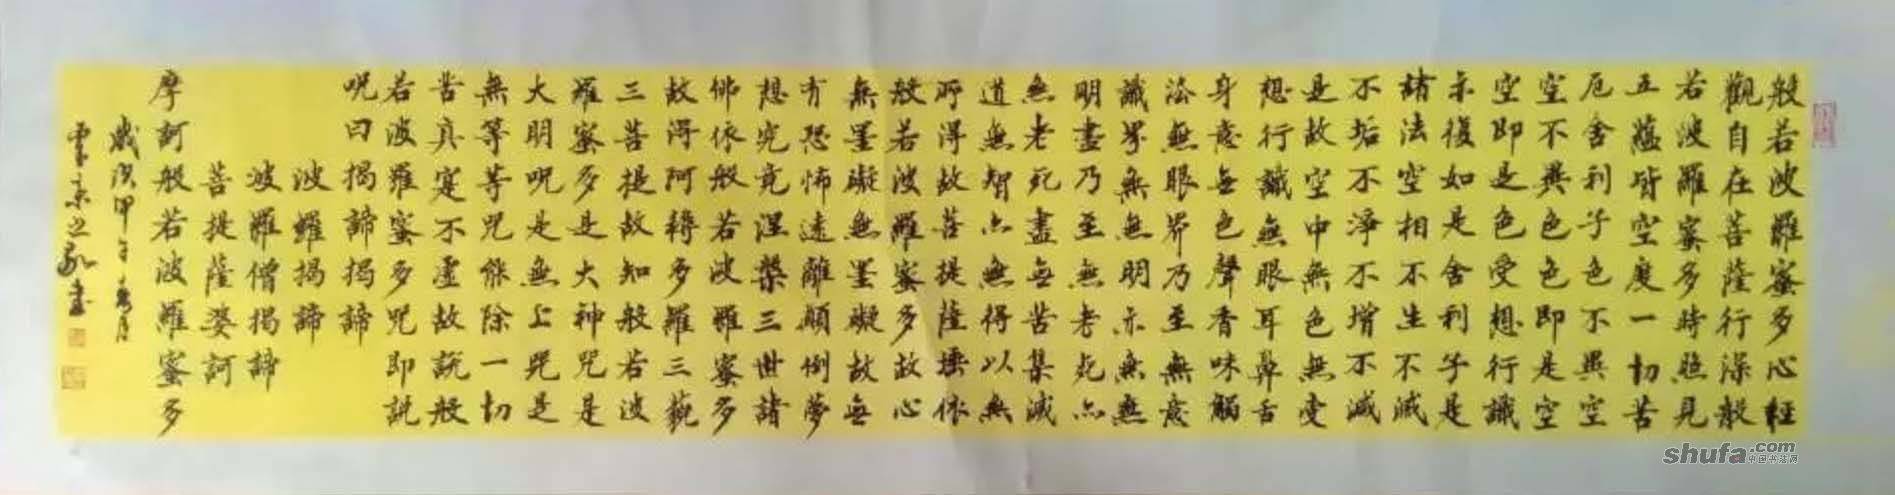 般若波羅蜜多心經
觀自在菩薩行深般
若波羅蜜多時照見
五蘊皆空度一切苦
厄舍利子色不異空
空不異色色即是空
空即是色受想行識
亦復如是舍利子是
諸法空相不生不滅
不垢不淨不增不減
是故空中無色無受
想行識無眼耳鼻舌
身意無色聲香味觸
法無眼界乃至無意
識界無無明亦無無
明盡乃至無老死亦
無老死盡無苦集滅
道無智亦無得以無
所得故菩提薩埵依
般若波羅蜜多故心
無罣礙無罣礙故無
有恐怖遠離顛倒夢
想究竟涅槃三世諸
佛依般若波羅蜜多
故得阿耨多羅三藐
三菩提故知般若波
羅蜜多是大神咒是
大明咒是無上咒是
無等等咒能除一切
苦真實不虛故說般
若波羅蜜多咒即說
呪曰揭諦揭諦
波羅揭諦
波羅僧揭諦
菩提薩婆訶
摩訶般若波羅蜜多
歲次甲午
書
shufa.com
中国书法网